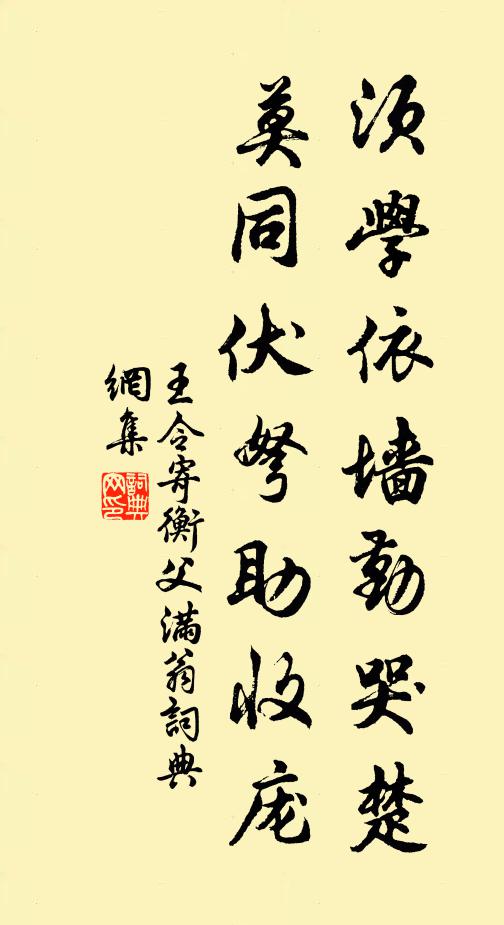 须學依墙勤哭楚
莫同伏弩助收庞
王令寄衡父滿翁詞典
網集
詞典
网印